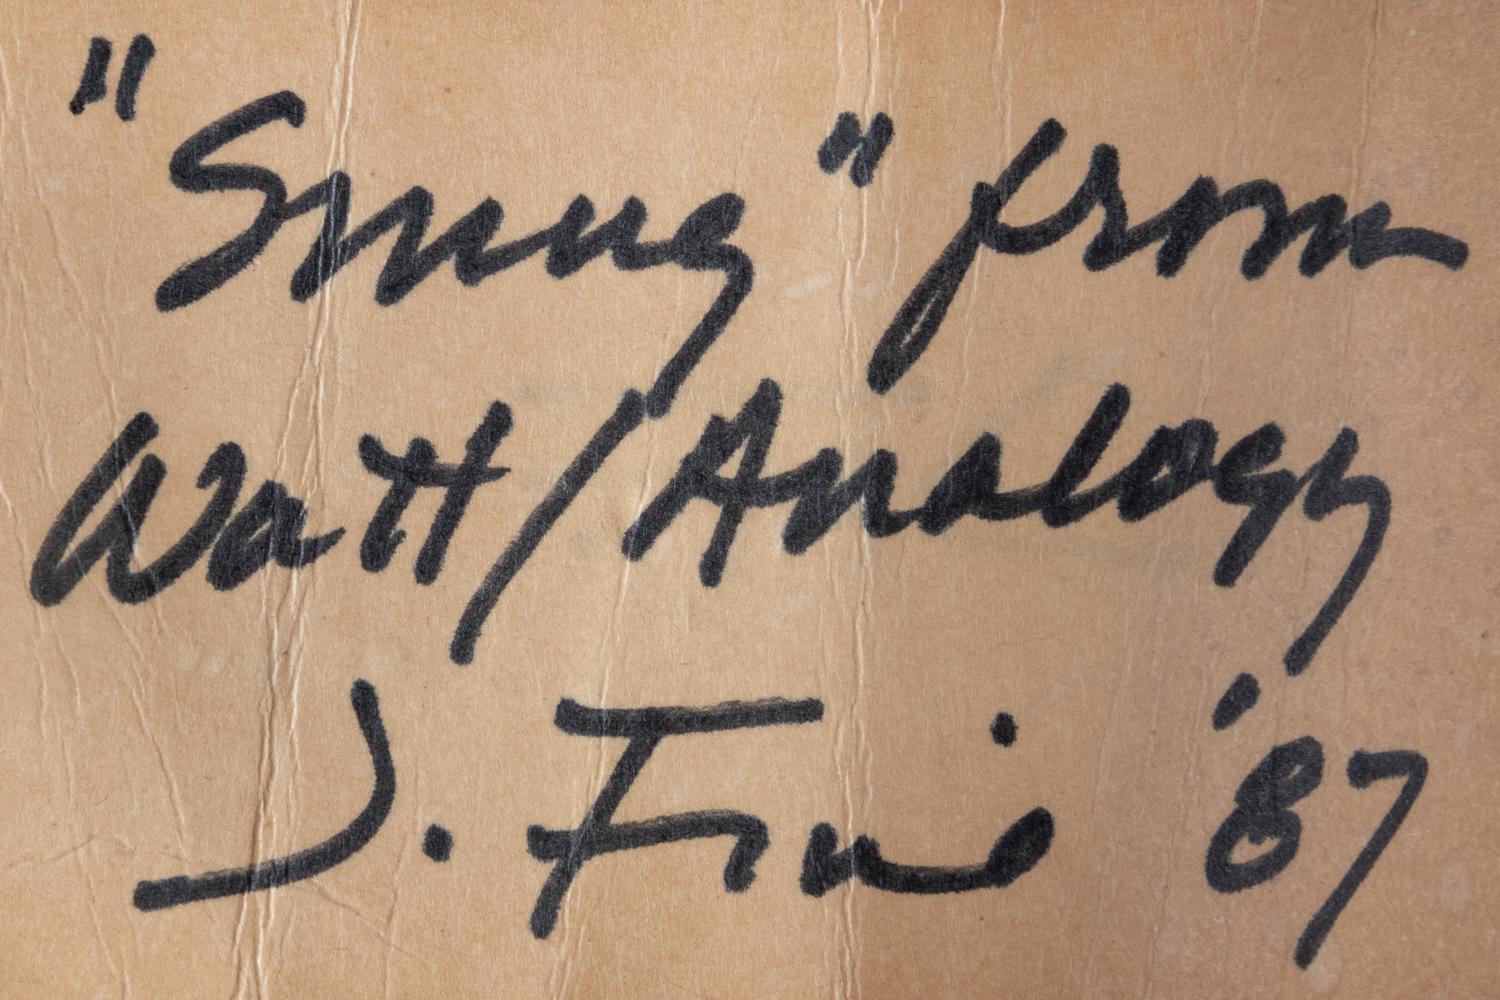 "Smug" from
Watt/Analogy
J. Fine '87